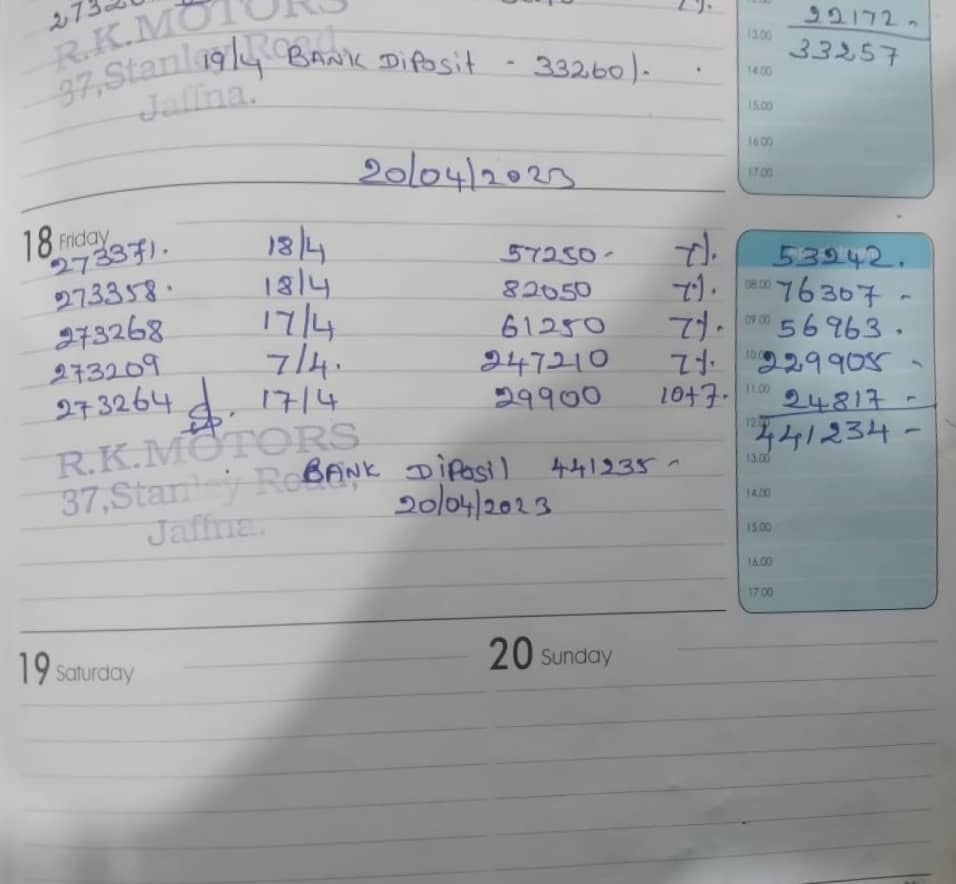 22172 -
13.00
33257
R.K.MOTORS
37,Stanley Road
Jaffna.
19/4 BANK Diposit - 33260/.
14.00
15.00
16.00
17.00
20/04/2023
18 Friday
273371. 18/4 57250- 7%. 53242.
273358. 18/4 82050 7%. 08.00 76307 -
273268 17/4 61250 7%. 09.00 56963.
273209 7/4. 247210 7%. 10.00 229905 -
273264 17/4 29900 10+7. 11.00 24817 -
12.00 441234 -
R.K.MOTORS
37,Stanley Road,
Jaffna.
BANK Diposil 441235 - 13.00
20/04/2023 14.00
15.00
16.00
17.00
19 Saturday 20 Sunday